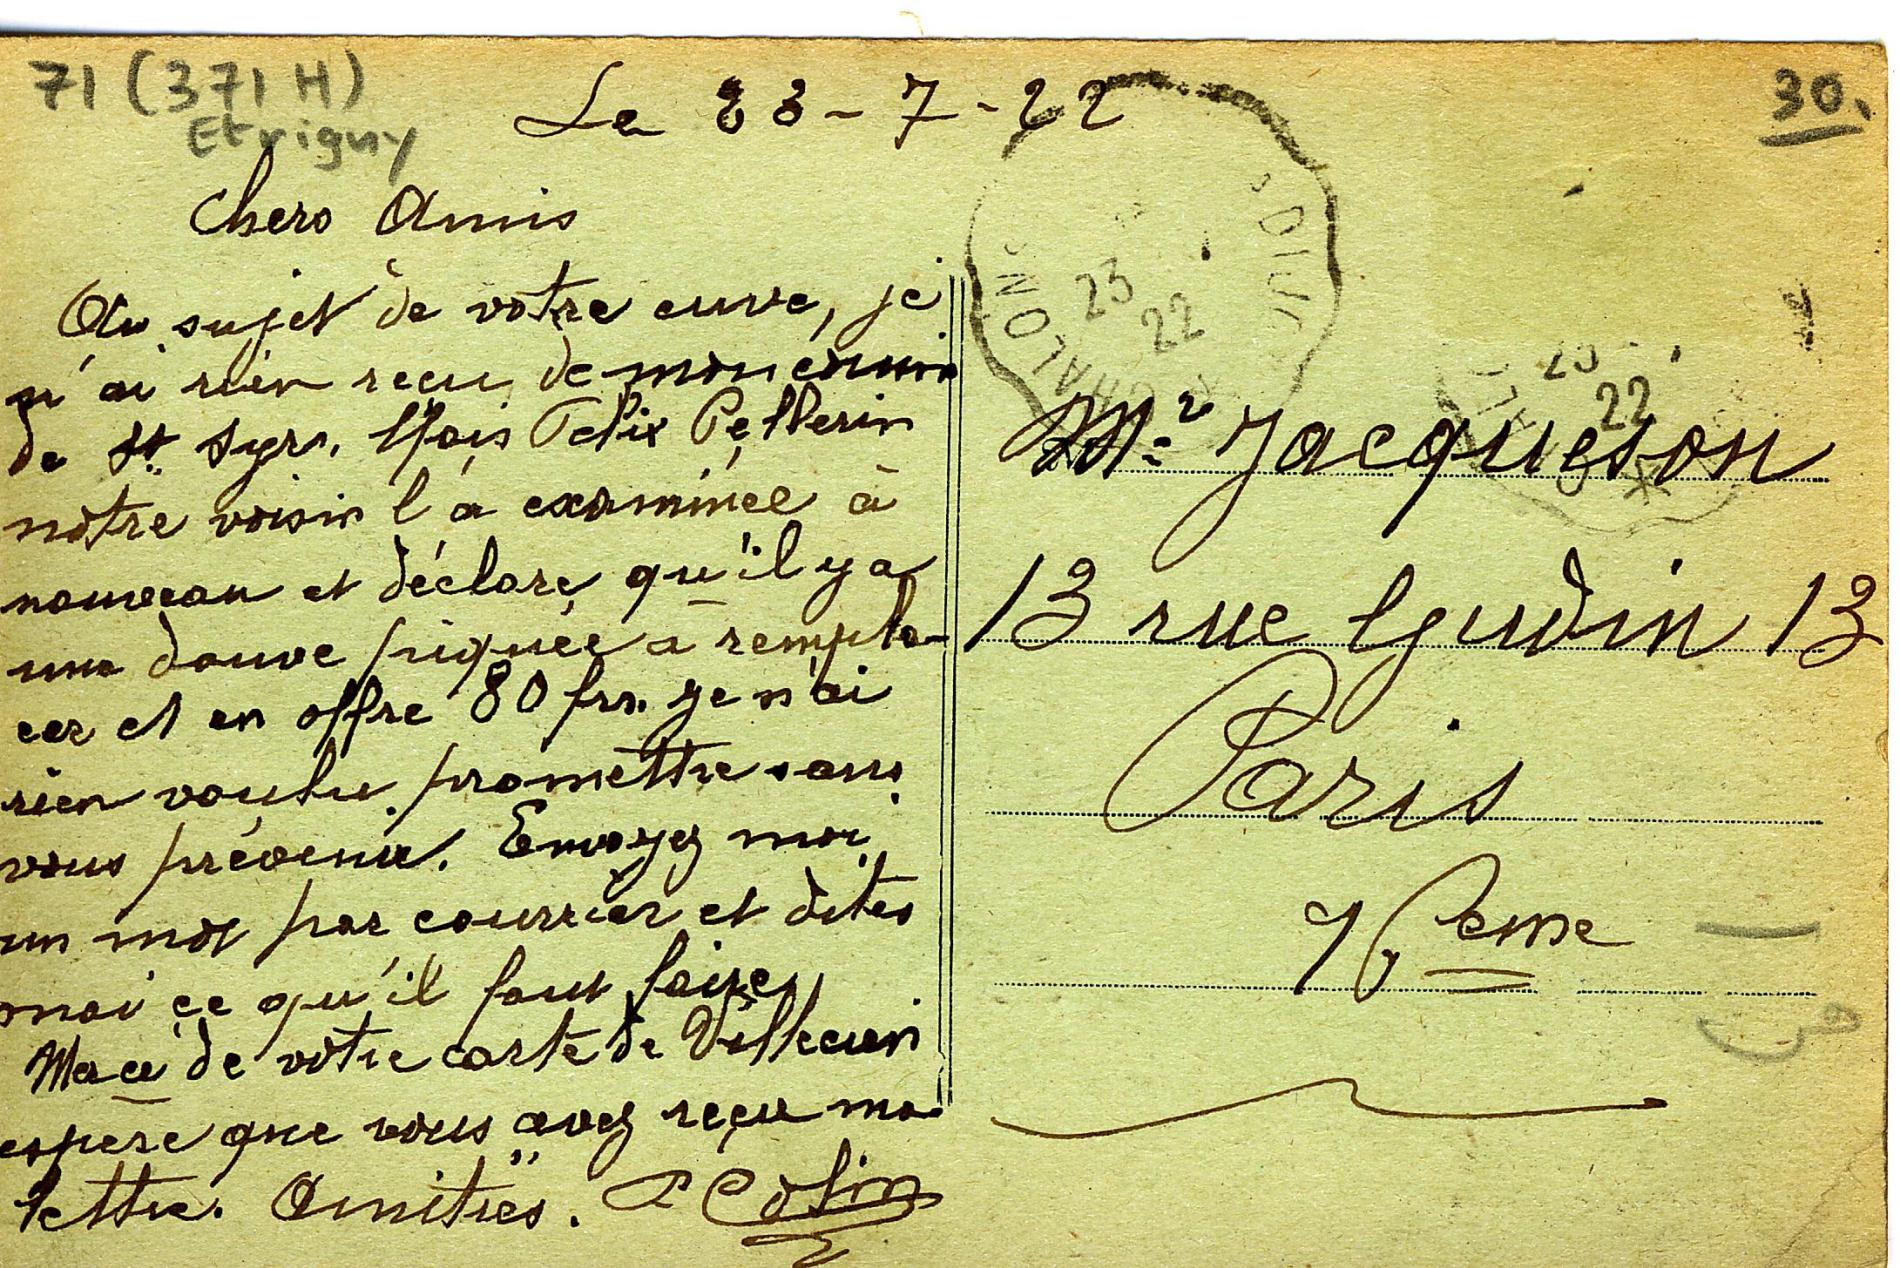 71 (371 H)
Etrigny
30.
Le 23-7-22
Chers Amis
Au sujet de votre cuve, je
n'ai rien reçu de mon cousin
de St Cyr. Mais Felix Pellerin
notre voisin l'a examinée à
nouveau et déclare qu'il y a
une douve piquée a rempla-
cer et en offre 80 frs. Je n'ai
rien voulu promettre sans
vous prévenir. Envoyez moi
un mot par courrier et dites
moi ce qu'il faut faire
Merci de votre carte de
espère que vous avez reçu ma
lettre. Amitiés. P Colin
CHALON
DIJ
23
22
22
Mr Jacqueson
13 rue Gudin 13
Paris
16eme